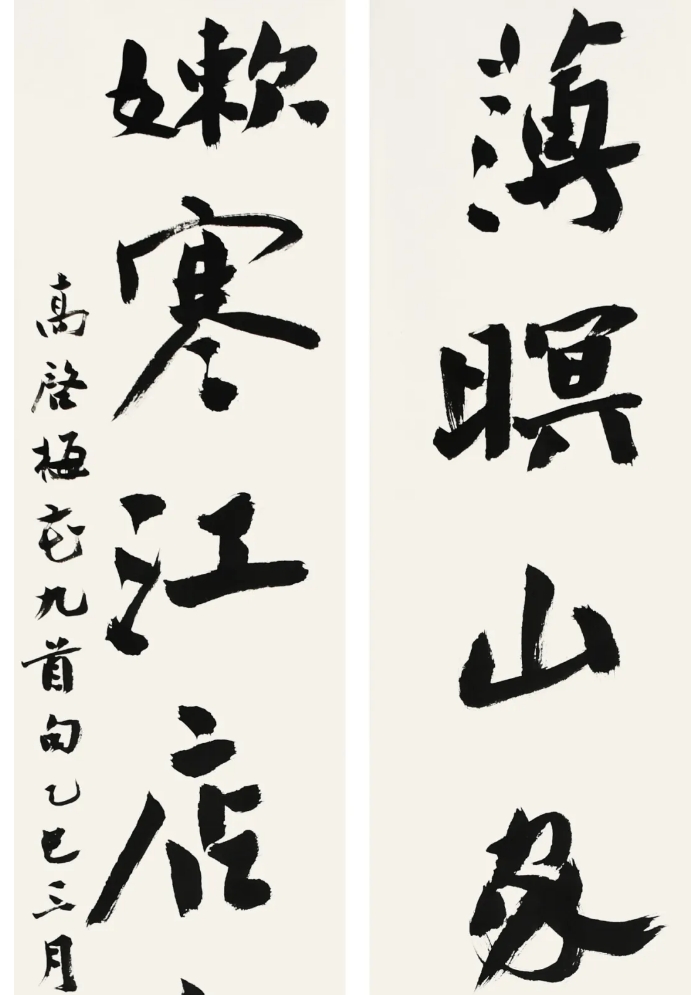 薄暝山家
嫩寒江店
高啓梅花九首句乙巳三月